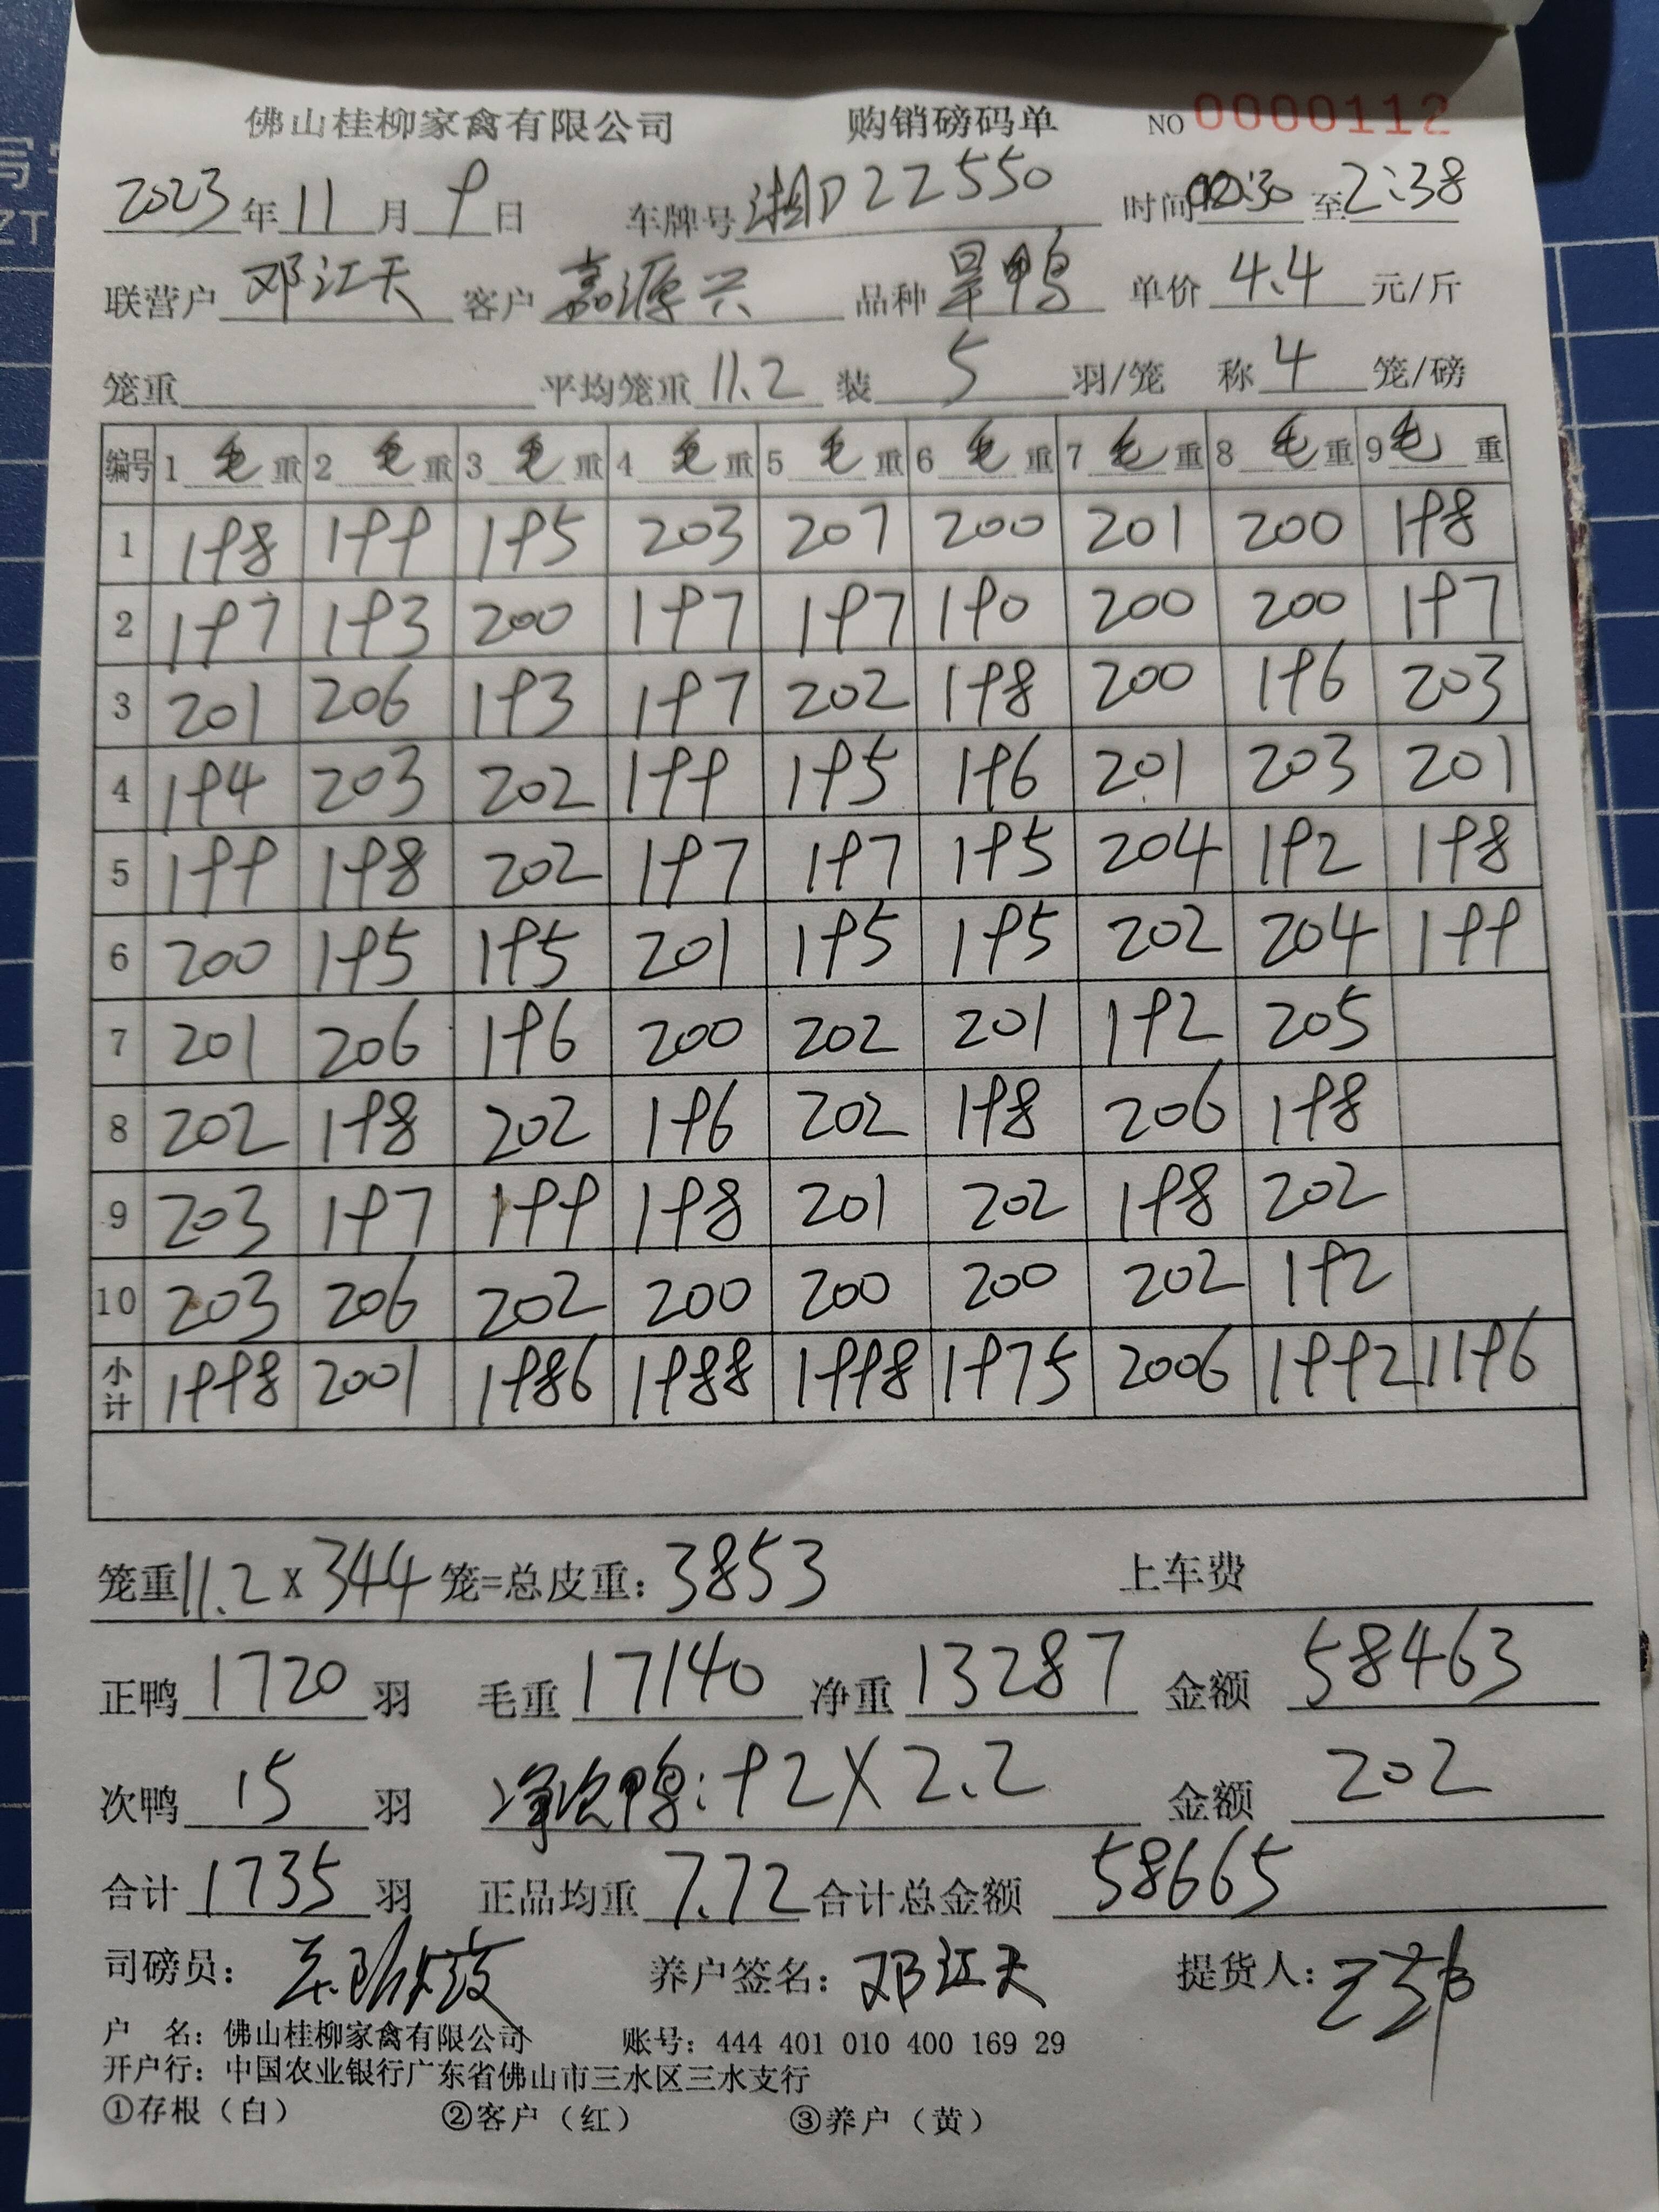 佛山桂柳家禽有限公司 购销磅码单 NO 0000112
2023年11月9日 车牌号 湘D22550 时间 :30 至 2:38
联营户 邓江天 客户 嘉源兴 品种 旱鸭 单价 4.4 元/斤
笼重 平均笼重 11.2 装 5 羽/笼 称 4 笼/磅
编号 1 毛重 2 毛重 3 毛重 4 毛重 5 毛重 6 毛重 7 毛重 8 毛重 9 毛重
1 198 199 195 203 207 200 201 200 198
2 197 193 200 197 197 190 200 200 197
3 201 206 193 197 202 198 200 196 203
4 194 203 202 199 195 196 201 203 201
5 199 198 202 197 197 195 204 192 198
6 200 195 195 201 195 195 202 204 199
7 201 206 196 200 202 201 192 205
8 202 198 202 196 202 198 206 198
9 203 197 199 198 201 202 198 202
10 203 206 202 200 200 200 202 192
小计 1998 2001 1986 1988 1998 1975 2006 1992 1196
笼重 11.2 x 344 笼=总皮重: 3853 上车费
正鸭 1720 羽 毛重 17140 净重 13287 金额 58463
次鸭 15 羽 净次鸭: 92 X 2.2 金额 202
合计 1735 羽 正品均重 7.72 合计总金额 58665
司磅员: 养户签名: 邓江天 提货人:
户 名: 佛山桂柳家禽有限公司 账号: 444 401 010 400 169 29
开户行: 中国农业银行广东省佛山市三水区三水支行
①存根(白) ②客户(红) ③养户(黄)